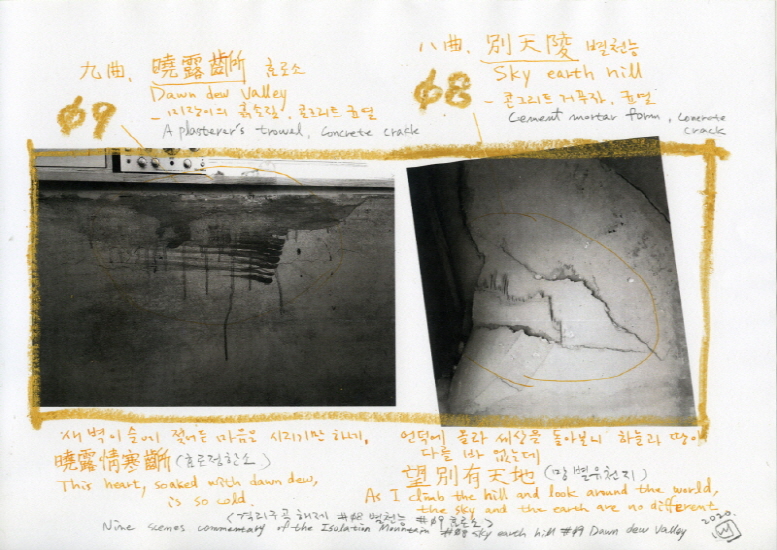 九曲. 曉露齭 효로소
Dawn dew Valley
∮9
- 미장이의 흙손질, 콘크리트 균열
A plasterer's trowel, concrete crack
八曲. 別天陵 별천능
Sky earth hill
∮8
- 콘크리트 거푸집, 균열
Cement mortar form, concrete
crack
새벽이슬에 젖는 마음은 시리기만 하네,
曉露情寒齭 (효로정한소)
This heart, soaked with dawn dew,
is so cold.
언덕에 올라 세상을 돌아보니 하늘과 땅이
다를 바 없는데
望別有天地 (망별유천지)
As I climb the hill and look around the world,
the sky and the earth are no different
<격리구곡 해제 #08 별천능 #09 효로소>
2020.
Nine scenes commentary of the Isolation Mountain #08 Sky earth hill #09 Dawn dew Valley